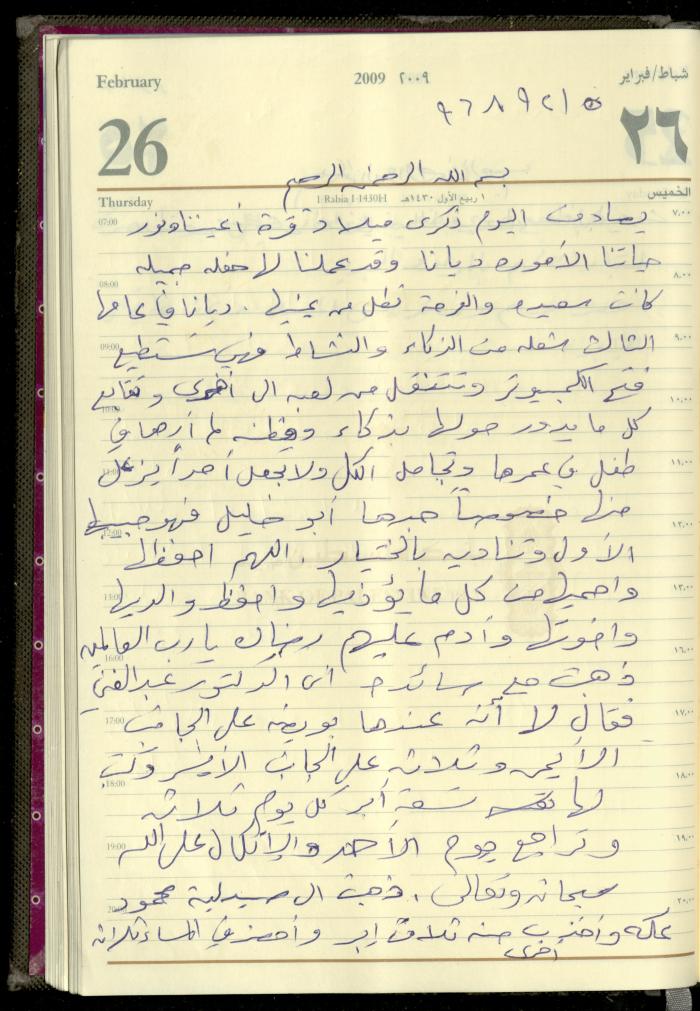 February 2009 ٢٠٠٩ شباط/فبراير
26 ٢٦
Thursday 1 Rabia I 1430H ١ ربيع الأول ١٤٣٠هـ الخميس
بسم الله الرحمن الرحيم
يصادف اليوم ذكرى ميلاد قرة أعيننا ونور
حياتنا الأموره ديانا وقد عملنا لها حفله جميله
كانت سعيده والفرحة تطل من عينيها . ديانا في عامها
الثالث شعله من الذكاء والنشاط فهي تستطيع
فتح الكمبيوتر وتتنقل من لعبه الى أخرى وتتابع
كل ما يدور حولها بذكاء وفطنه لم أرها في
طفل في عمرها وتجامل الكل ولا تجعل أحداً يزعل
منها خصوصاً جدها أبو خليل فهو حبيبها
الأول وتناديه بالختيار . اللهم احفظها
واحميها من كل ما يؤذيها واحفظ والديها
واخوتها وأدم عليهم رضاك يا رب العالمين
ذهبت مع سائده الى الدكتور عبد الغني
فقال لا أنه عندها بويضه على الجانب
الأيمن وثلاثه على الجانب الأيسر وكتب
لها تسعة أبر كل يوم ثلاثه
وتراجع يوم الأحد والإتكال على الله
سبحانه وتعالى . ذهبت الى صيدلية محمود
عكه وأخذت منه ثلاث إبر وأحضر في المساء ثلاثه
أخرى
07:00 ٧,٠٠
08:00 ٨,٠٠
09:00 ٩,٠٠
10:00 ١٠,٠٠
11:00 ١١,٠٠
12:00 ١٢,٠٠
13:00 ١٣,٠٠
16:00 ١٦,٠٠
17:00 ١٧,٠٠
18:00 ١٨,٠٠
19:00 ١٩,٠٠
20:00 ٢٠,٠٠